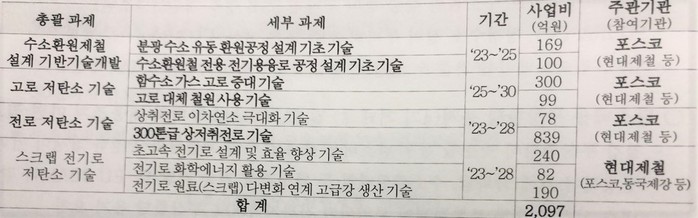 총괄 과제 세부 과제 기간 사업비 (억원) 주관기관 (참여기관)
수소환원제철 설계 기반기술개발 분광 수소 유동 환원공정 설계 기초 기술 '23~'25 169 포스코 (현대제철 등)
수소환원철 전용 전기용융로 공정 설계 기초 기술 100
고로 저탄소 기술 함수소 가스 고로 중대 기술 '25~'30 300 포스코 (현대제철 등)
고로 대체 철원 사용 기술 99
전로 저탄소 기술 상취전로 이차연소 극대화 기술 '23~'28 78 포스코 (현대제철 등)
300톤급 상저취전로 기술 839
스크랩 전기로 저탄소 기술 초고속 전기로 설계 및 효율 향상 기술 '23~'28 240 현대제철 (포스코,동국제강 등)
전기로 화학에너지 활용 기술 82
전기로 원료(스크랩) 다변화 연계 고급강 생산 기술 190
합 계 2,097